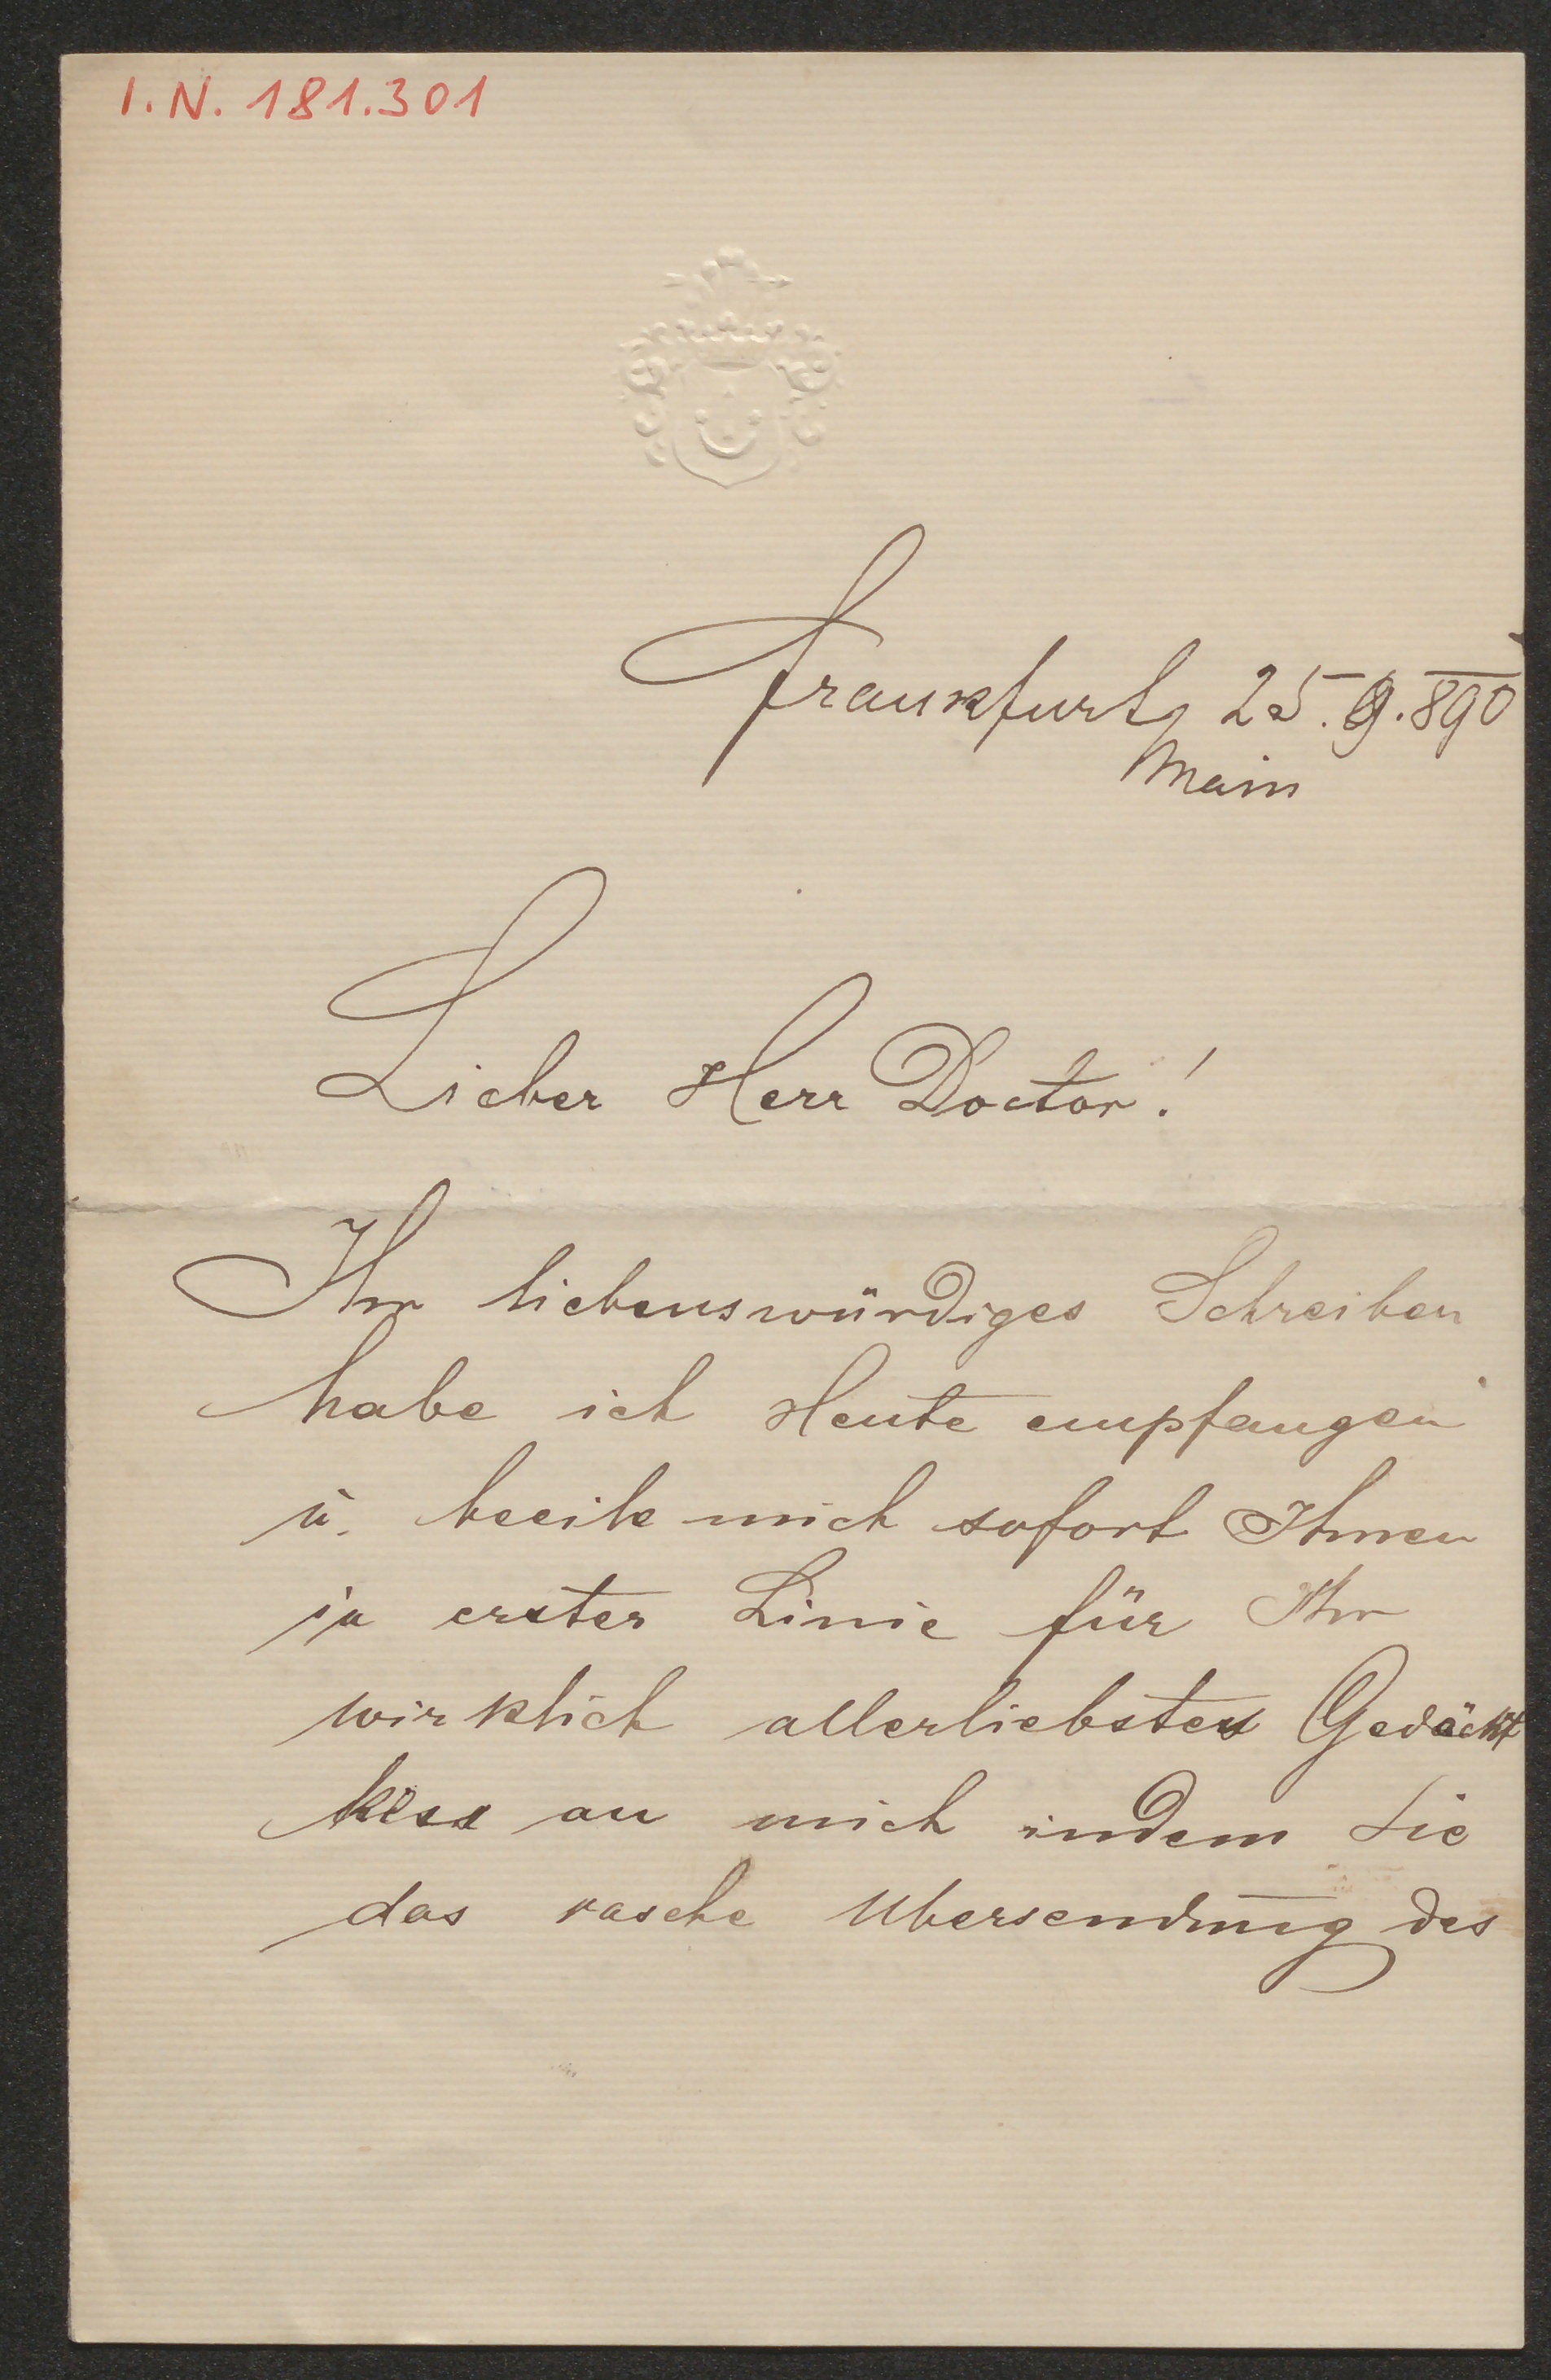 I.N. 181.301
Frankfurt, 25.9.890
Main
Lieber Herr Doctor!
Ihr liebenswürdiges Schreiben
habe ich Heute empfangen
u. beeile mich sofort Ihnen
in erster Linie für Ihr
wirklich allerliebstes Gedächt
niss an mich indem Sie
das rasche Ubersendung des